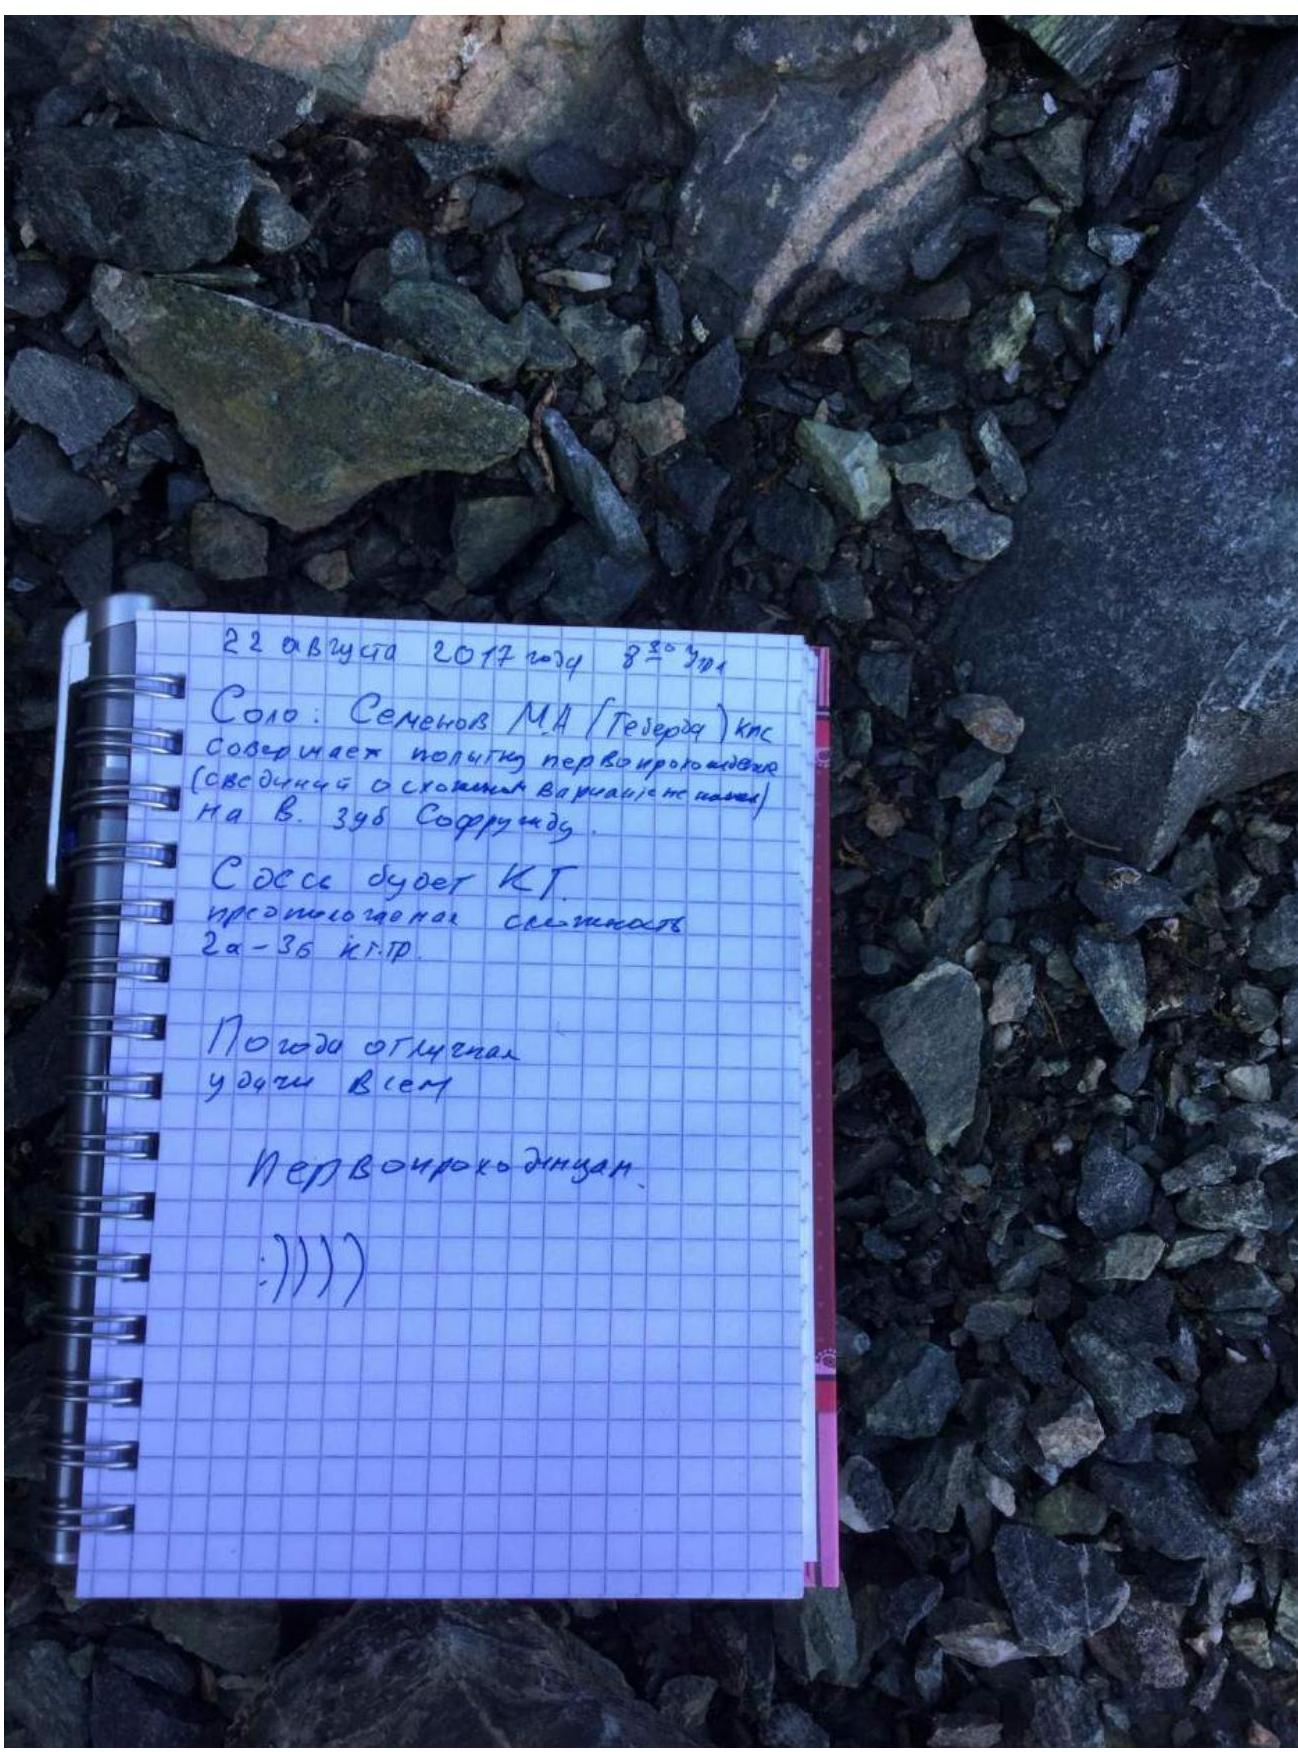 22 августа 2017 году 8 30 Утра
Соло: Семенов М.А (Теберда) КПС
совершает попытку первопрохождение
(свединий о схожем варианте не нашел)
на В. зуб Софруджу.
Здесь будет КТ.
предпологаемая сложность
2а-3б кт.тр.
Погода отличная
удачи всем
Первопроходцам.
:))))